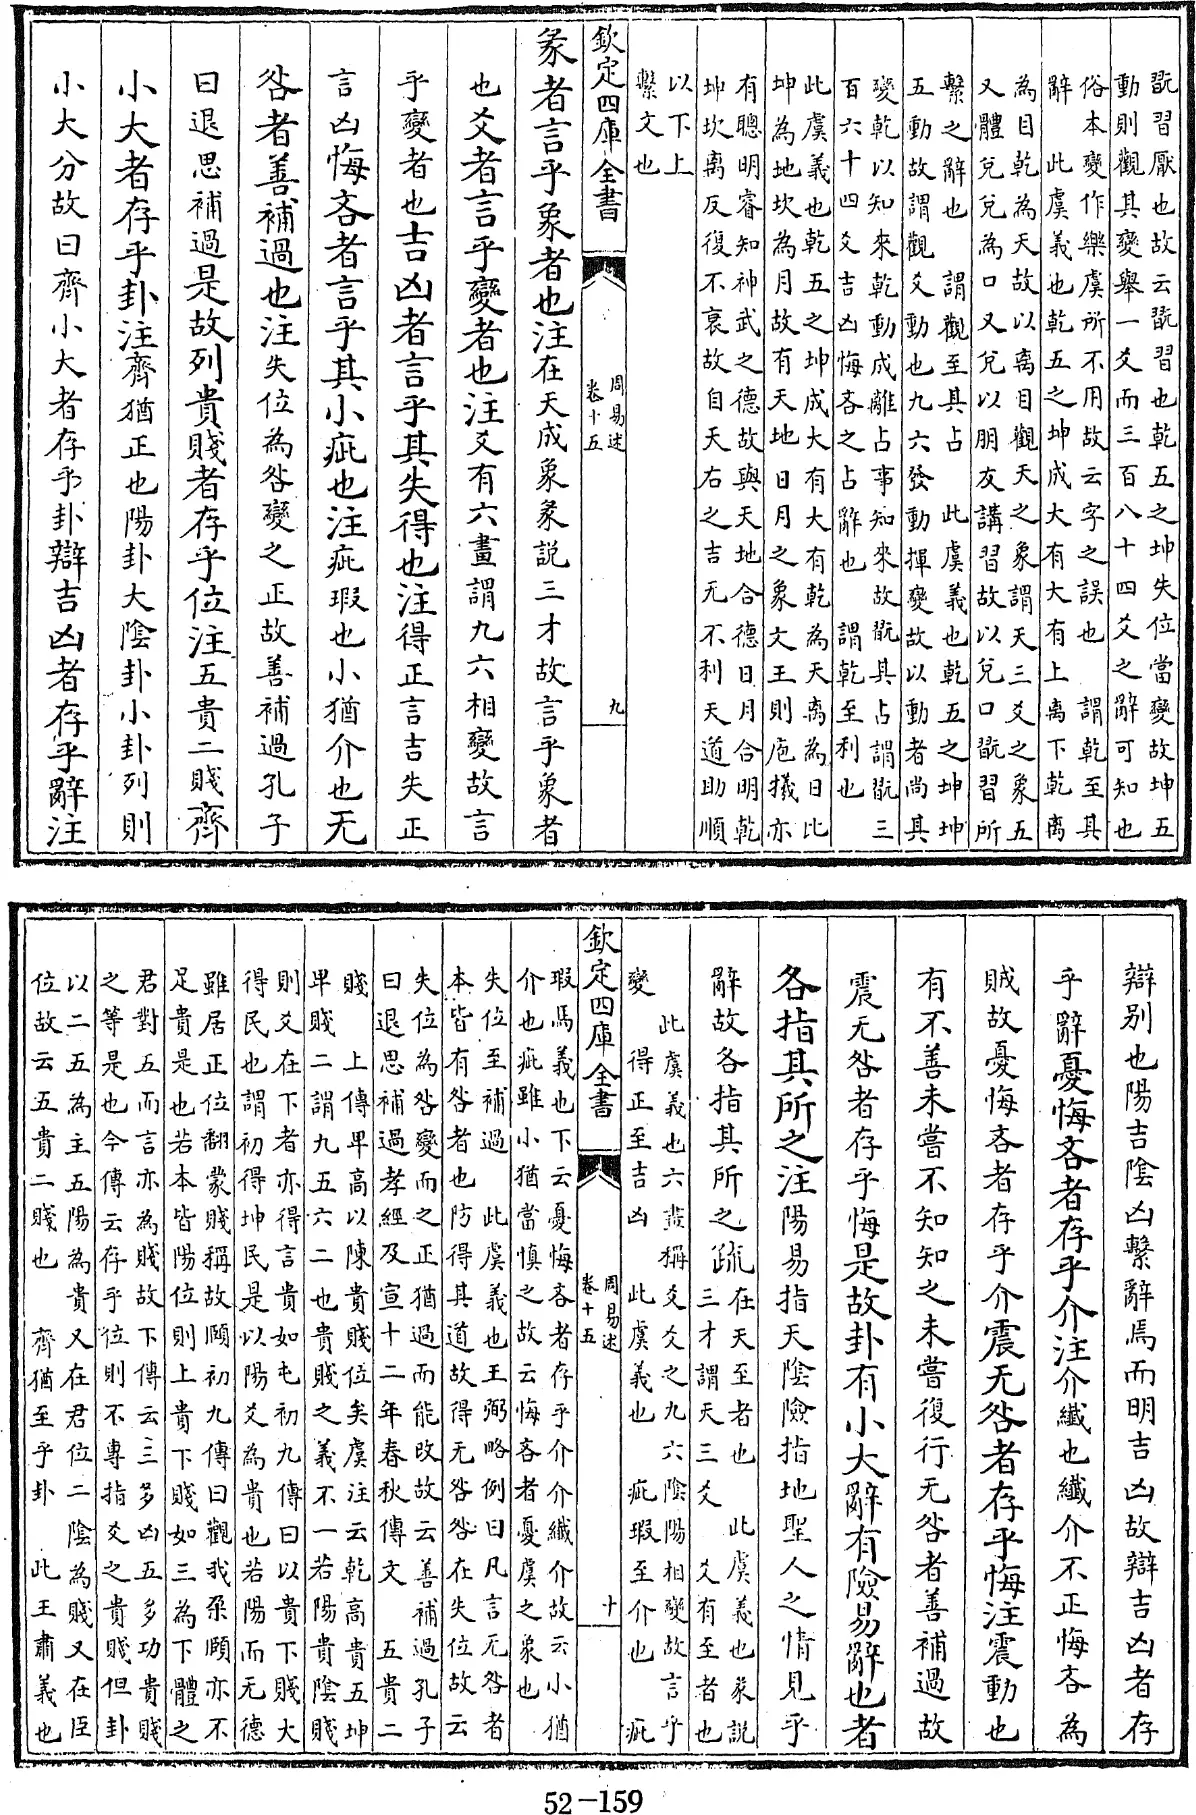 翫習厭也故云翫習也乾五之坤失位當變故坤五
動則觀其變舉一爻而三百八十四爻之辭可知也
俗本變作樂虞所不用故云字之誤也　謂乾至其
辭　此虞義也乾五之坤成大有大有上离下乾离
為目乾為天故以离目觀天之象謂天三爻之象五
又體兌兌為口又兌以朋友講習故以兌口翫習所
繫之辭也　謂觀至其占　此虞義也乾五之坤坤
五動故謂觀爻動也九六發動揮變故以動者尚其
變乾以知來乾動成離占事知來故翫其占謂翫三
百六十四爻吉凶悔吝之占辭也　謂乾至利也
此虞義也乾五之坤成大有大有乾為天离為日比
坤為地坎為月故有天地日月之象文王則庖犧亦
有聰明睿知神武之德故與天地合德日月合明乾
坤坎离反復不衰故自天右之吉无不利天道助順
以下上
繫文也
欽定四庫全書
周易述
卷十五
九
彖者言乎象者也注在天成象彖説三才故言乎象者
也爻者言乎變者也注爻有六畫謂九六相變故言
乎變者也吉凶者言乎其失得也注得正言吉失正
言凶悔吝者言乎其小疵也注疵瑕也小猶介也无
咎者善補過也注失位為咎變之正故善補過孔子
曰退思補過是故列貴賤者存乎位注五貴二賤齊
小大者存乎卦注齊猶正也陽卦大陰卦小卦列則
小大分故曰齊小大者存乎卦辯吉凶者存乎辭注
辯别也陽吉陰凶繫辭焉而明吉凶故辯吉凶者存
乎辭憂悔吝者存乎介注介纖也纖介不正悔吝為
賊故憂悔吝者存乎介震无咎者存乎悔注震動也
有不善未嘗不知知之未嘗復行无咎者善補過故
震无咎者存乎悔是故卦有小大辭有險易辭也者
各指其所之注陽易指天陰險指地聖人之情見乎
辭故各指其所之疏在天至者也　此虞義也彖説
三才謂天三爻　爻有至者也
此虞義也六畫稱爻爻之九六陰陽相變故言乎
變　得正至吉凶　此虞義也　疵瑕至介也　疵
欽定四庫全書
周易述
卷十五
十
瑕馬義也下云憂悔吝者存乎介介纖介故云小猶
介也疵雖小猶當慎之故云悔吝者憂虞之象也
失位至補過　此虞義也王弼略例曰凡言无咎者
本皆有咎者也防得其道故得无咎咎在失位故云
失位為咎變而之正猶過而能改故云善補過孔子
曰退思補過孝經及宣十二年春秋傳文　五貴二
賤　上傳卑高以陳貴賤位矣虞注云乾高貴五坤
卑賤二謂九五六二也貴賤之義不一若陽貴陰賤
則爻在下者亦得言貴如屯初九傳曰以貴下賤大
得民也謂初得坤民是以陽爻為貴也若陽而无德
雖居正位翻蒙賤稱故頤初九傳曰觀我朶頤亦不
足貴是也若本皆陽位則上貴下賤如三為下體之
君對五而言亦為賤故下傳云三多凶五多功貴賤
之等是也今傳云存乎位則不專指爻之貴賤但卦
以二五為主五陽為貴又在君位二陰為賤又在臣
位故云五貴二賤也　齊猶至乎卦　此王肅義也
52-159